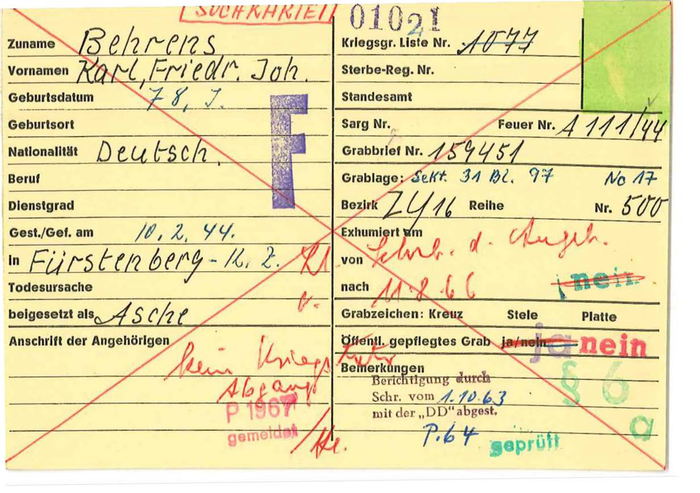 SUCHKARTEI
Zuname Behrens
Vornamen Karl, Friedr. Joh.
Geburtsdatum 78 J.
Geburtsort
Nationalität Deutsch.
Beruf
Dienstgrad
Gest./Gef. am 10.2.44.
in Fürstenberg - K. Z.
Todesursache
beigesetzt als Asche
Anschrift der Angehörigen
kein Kriegs
Abgang
P 1967
gemeldet
F
01021
Kriegsgr. Liste Nr. 1077
Sterbe-Reg. Nr.
Standesamt
Sarg Nr. Feuer Nr. A 111/44
Grabbrief Nr. 159451
Grablage: Sekt. 31 Bl. 97 No 17
Bezirk ZY16 Reihe Nr. 500
Exhumiert am
von Schrb. d. Angeh.
nach 11.8.66 nein
Grabzeichen: Kreuz Stele Platte
Öffentl. gepflegtes Grab ja/nein ja nein
Bemerkungen § 6
Berichtigung durch
Schr. vom 1.10.63
mit der „DD" abgest. a
P. 64 geprüft